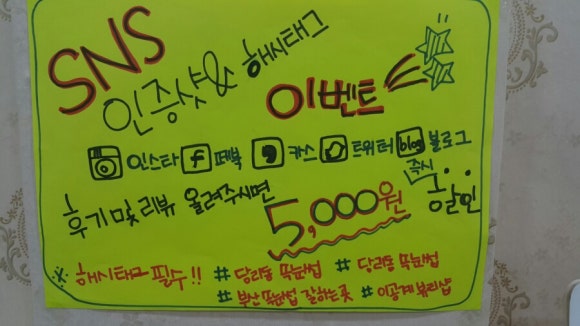 SNS
인증샷& 해시태그
이벤트
인스타 f 페북 카스 트위터 blog 블로그
후기 및 리뷰 올려주시면
5,000원 즉시 할인
※ 해시태그 필수!! # 당리동 뚝눈썹 # 당리동 뚝눈썹
# 부산뚝눈썹 잘하는곳 # 이공계뷰티샵